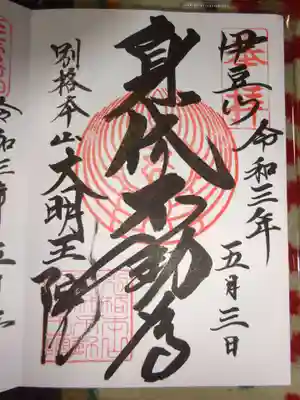 奉拝
伊豆山 令和三年
五月三日
身代不動尊
別格本山大明王院
令和三年 五月三